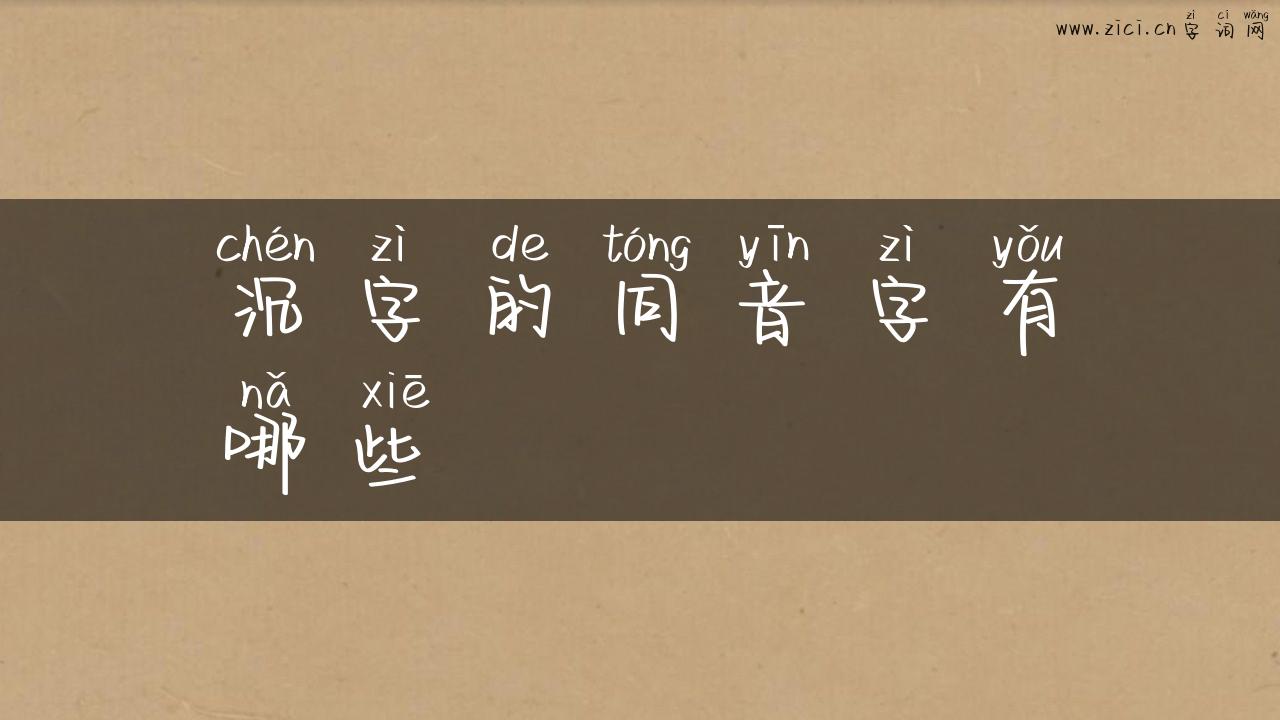 zì cí wǎng
www.zici.cn 字词网
chén zì de tóng yīn zì yǒu
沉字的同音字有
nǎ xiē
哪些